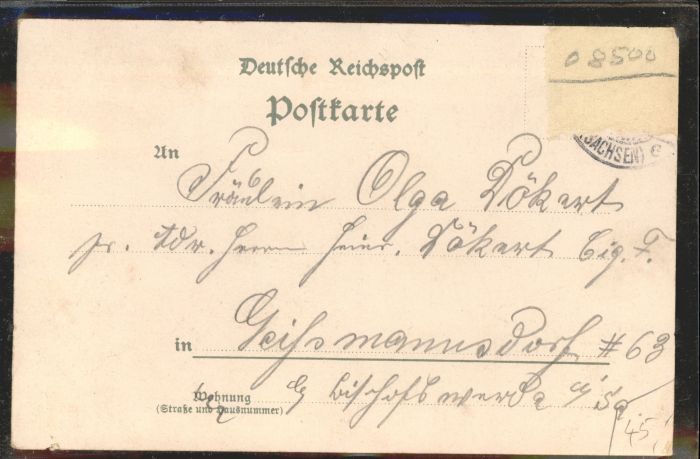 08500
Deutsche Reichspost
Postkarte
(SACHSEN)
An
Fräulein Olga Dökert
pr. Adr. Herrn Heinr. Dökert Cig. F.
in Geißmannsdorf # 63
Wohnung b/ Bischofswerda i/Sa
(Straße und Hausnummer)
45,